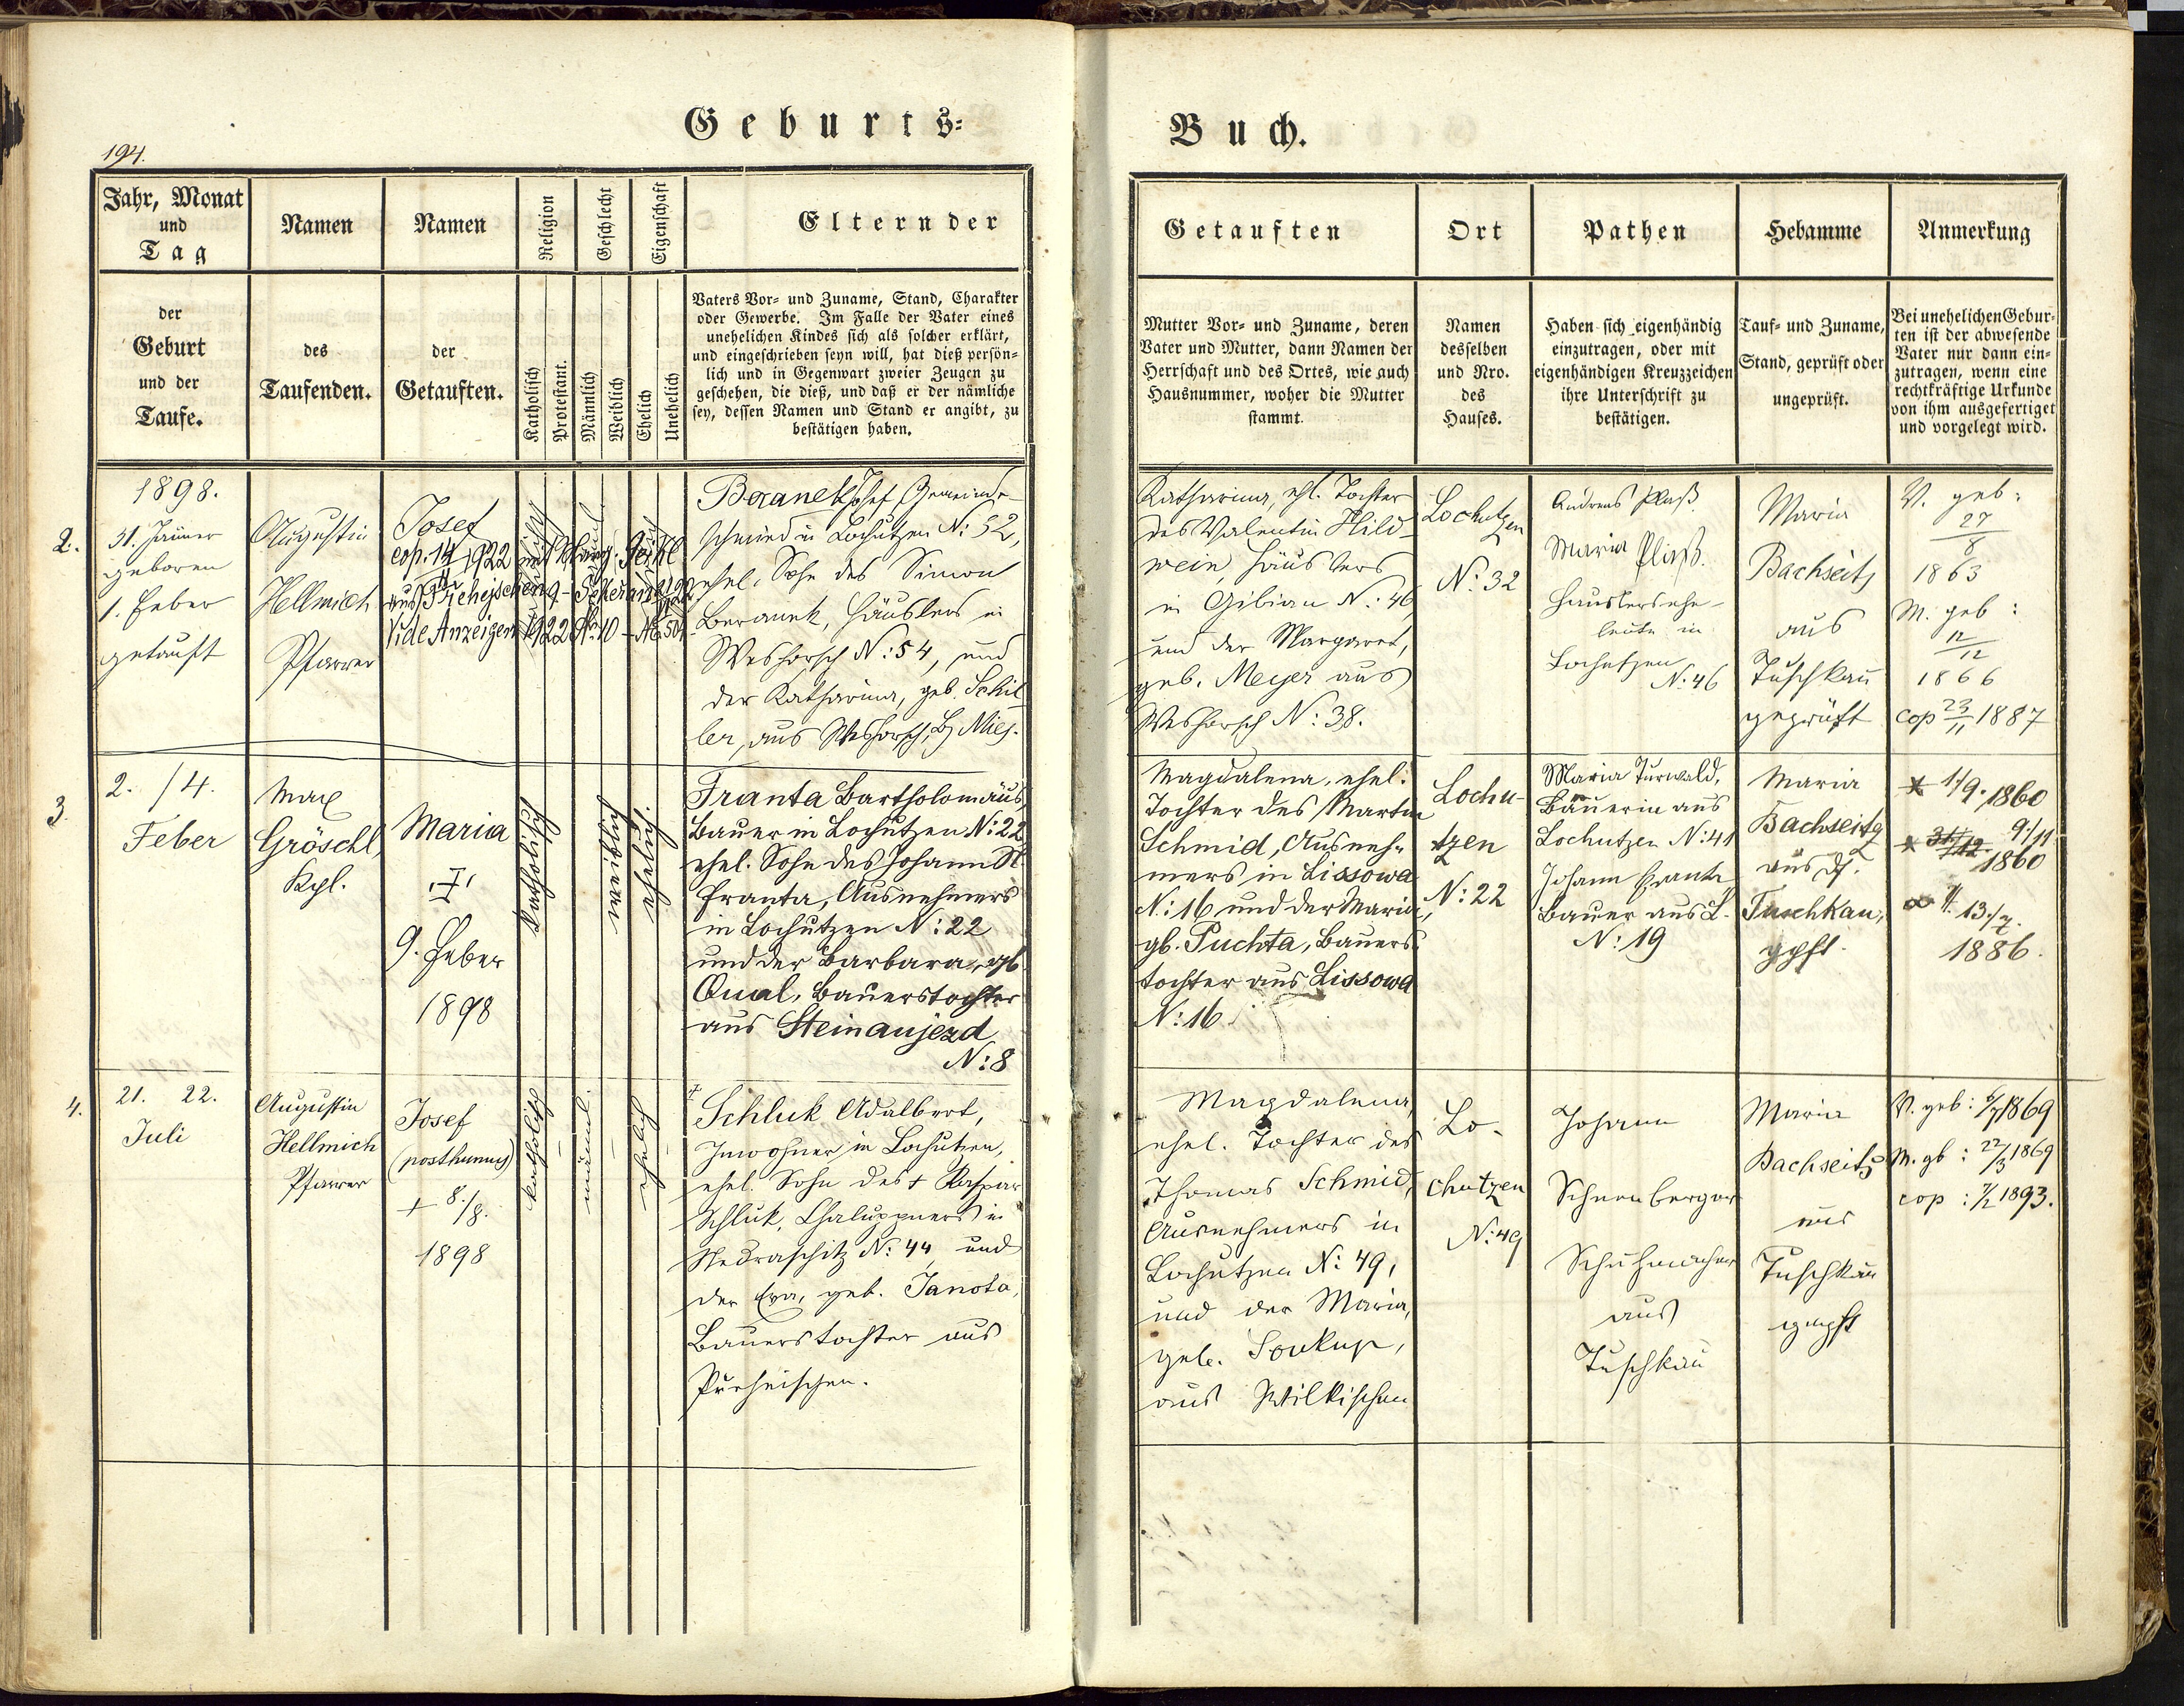 194.
Geburts=
Buch.
Jahr, Monat
und
Tag
der
Geburt
und der
Taufe.
Namen
des
Taufenden.
Namen
der
Getauften.
Religion
Katholisch
Protestant.
Geschlecht
Männlich
Weiblich
Eigenschaft
Ehelich
Unehelich
Eltern der
Vaters Vor= und Zuname, Stand, Charakter
oder Gewerbe. Im Falle der Vater eines
unehelichen Kindes sich als solcher erklärt,
und eingeschrieben seyn will, hat dieß persön=
lich und in Gegenwart zweier Zeugen zu
geschehen, die dieß, und daß er der nämliche
sey, dessen Namen und Stand er angibt, zu
bestätigen haben.
Getauften
Mutter Vor= und Zuname, deren
Vater und Mutter, dann Namen der
Herrschaft und des Ortes, wie auch
Hausnummer, woher die Mutter
stammt.
Ort
Namen
desselben
und Nro.
des
Hauses.
Pathen
Haben sich eigenhändig
einzutragen, oder mit
eigenhändigen Kreuzzeichen
ihre Unterschrift zu
bestätigen.
Hebamme
Tauf= und Zuname,
Stand, geprüft oder
ungeprüft.
Anmerkung
Bei unehelichen Gebur=
ten ist der abwesende
Vater nur dann ein=
zutragen, wenn eine
rechtkräftige Urkunde
von ihm ausgefertiget
und vorgelegt wird.
2.
1898.
31. Jänner
geboren
1. Feber
getauft
Augustin
Hellmich
Pfarrer
Josef
cop. 14/11 1922 mit
Vide Anzeigen 1922 N: 10
Beranek Josef, Gemeinde-
schmied in Lochutzen N: 52,
ehel. Sohn des Simon
Beranek, Häuslers in
Weshorsch N: 54, und
der Katharina, geb. Schil-
ler, aus Weshorsch, Bz Mies.
Katharina, ehl. Tochter
des Valentin Hild-
wein, Häuslers
in Gibian N: 46
und der Margaret,
geb. Meyer aus
Weshorsch N: 38.
Lochutzen
N: 32
Andreas Plaß
Maria Plaß.
Häuslersehe-
leute in
Lochutzen
N: 46
Maria
Bachseitz
aus
Tuschkau
geprüft
V. geb:
27/8
1863
M. geb:
12/12
1866
cop 23/11 1887
3.
2. /4.
Feber
Max
Gröschl,
Kpl.
Maria
9. Feber
1898
katholisch
weiblich
ehelich.
Franta Bartholomäus,
Bauer in Lochutzen N: 22
ehel. Sohn des Johann N.
Franta, Ausnehmers
in Lochutzen N: 22
und der Barbara, gb
Qual, Bauerstochter
aus Steinaujezd
N: 8
Magdalena, ehel.
Tochter des Martin
Schmid, Ausneh-
mers in Lissowa
N: 16 und der Maria,
gb. Puchta, Bauers-
tochter aus Lissowa
N: 16
Lochu-
tzen
N: 22
Maria Turwald,
Bäuerin aus
Lochutzen N: 41
Johann Franta
Bauer aus L.
N: 19
Maria
Bachseitz
aus
Tuschkau,
gpft.
* 1/9. 1860
* 31/12 9./11
1860
13./7.
1886.
4.
21. 22.
Juli
Augustin
Hellmich
Pfarrer
Josef
(posthumus)
+ 8./8.
1898
katholisch
männl.
ehelich
+ Schluk Adalbert,
Inwohner in Lochutzen,
ehel. Sohn des + Kaspar
Schluk, Chaluppners in
Nedraschitz N: 44, und
der Eva, geb. Janota,
Bauerstochter aus
Magdalena,
ehel. Tochter des
Thomas Schmid,
Ausnehmers in
Lochutzen N: 49,
und der Maria,
geb. Soukup,
aus Wilkischen
Lo-
chutzen
N: 49
Johann
Schnenberger
Schuhmacher
aus
Tuschkau
Maria
Bachseitz
aus
Tuschkau
gepft
V. geb: 6/7 1869
M. gb: 22/3 1869
cop: 7/2 1893.